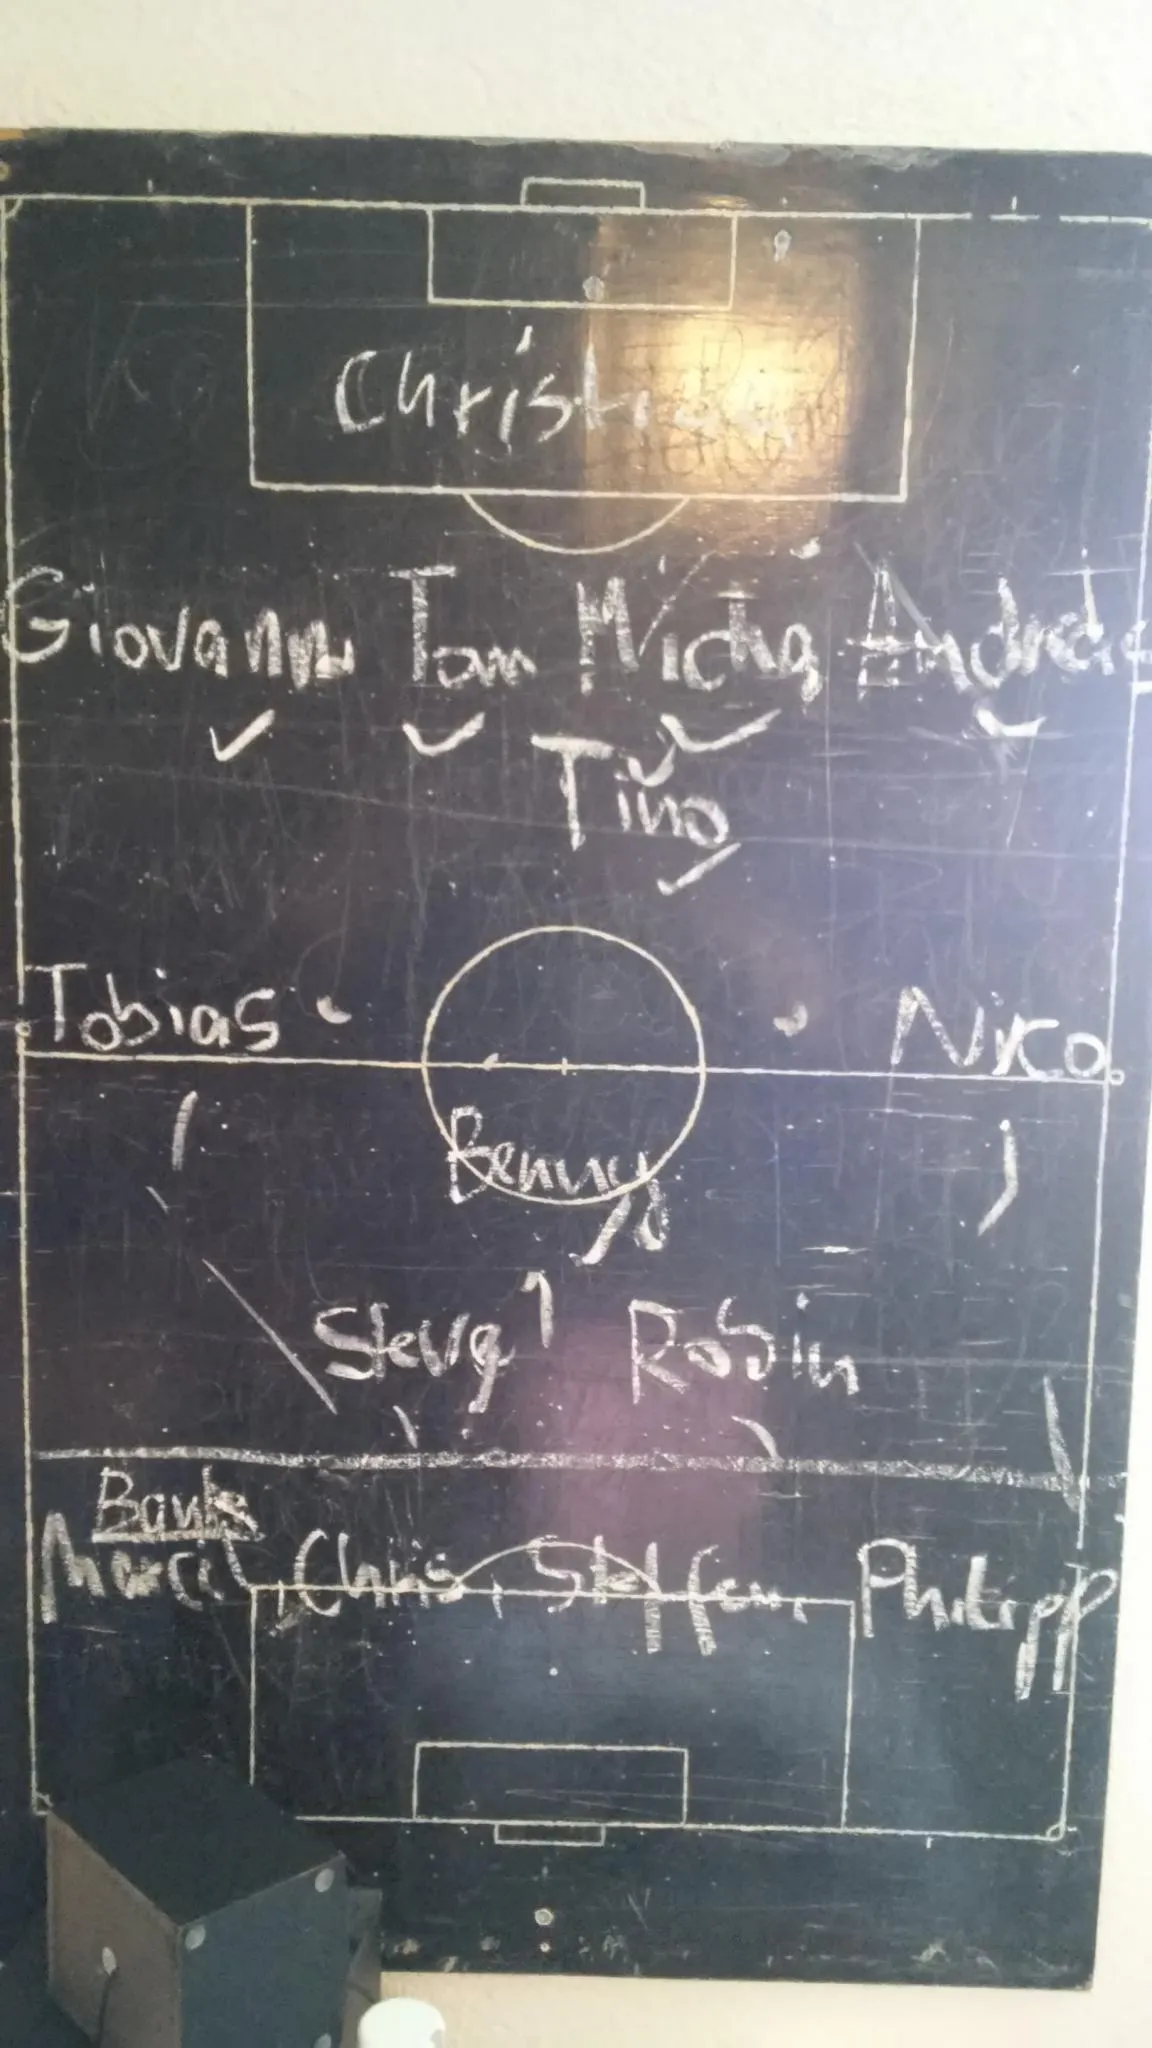 Christian
Giovanni Tom Micha Andreas
Tino
Tobias Nico
Benny
Steve Robin
Bank
Marcel, Chris, Steffen, Philipp